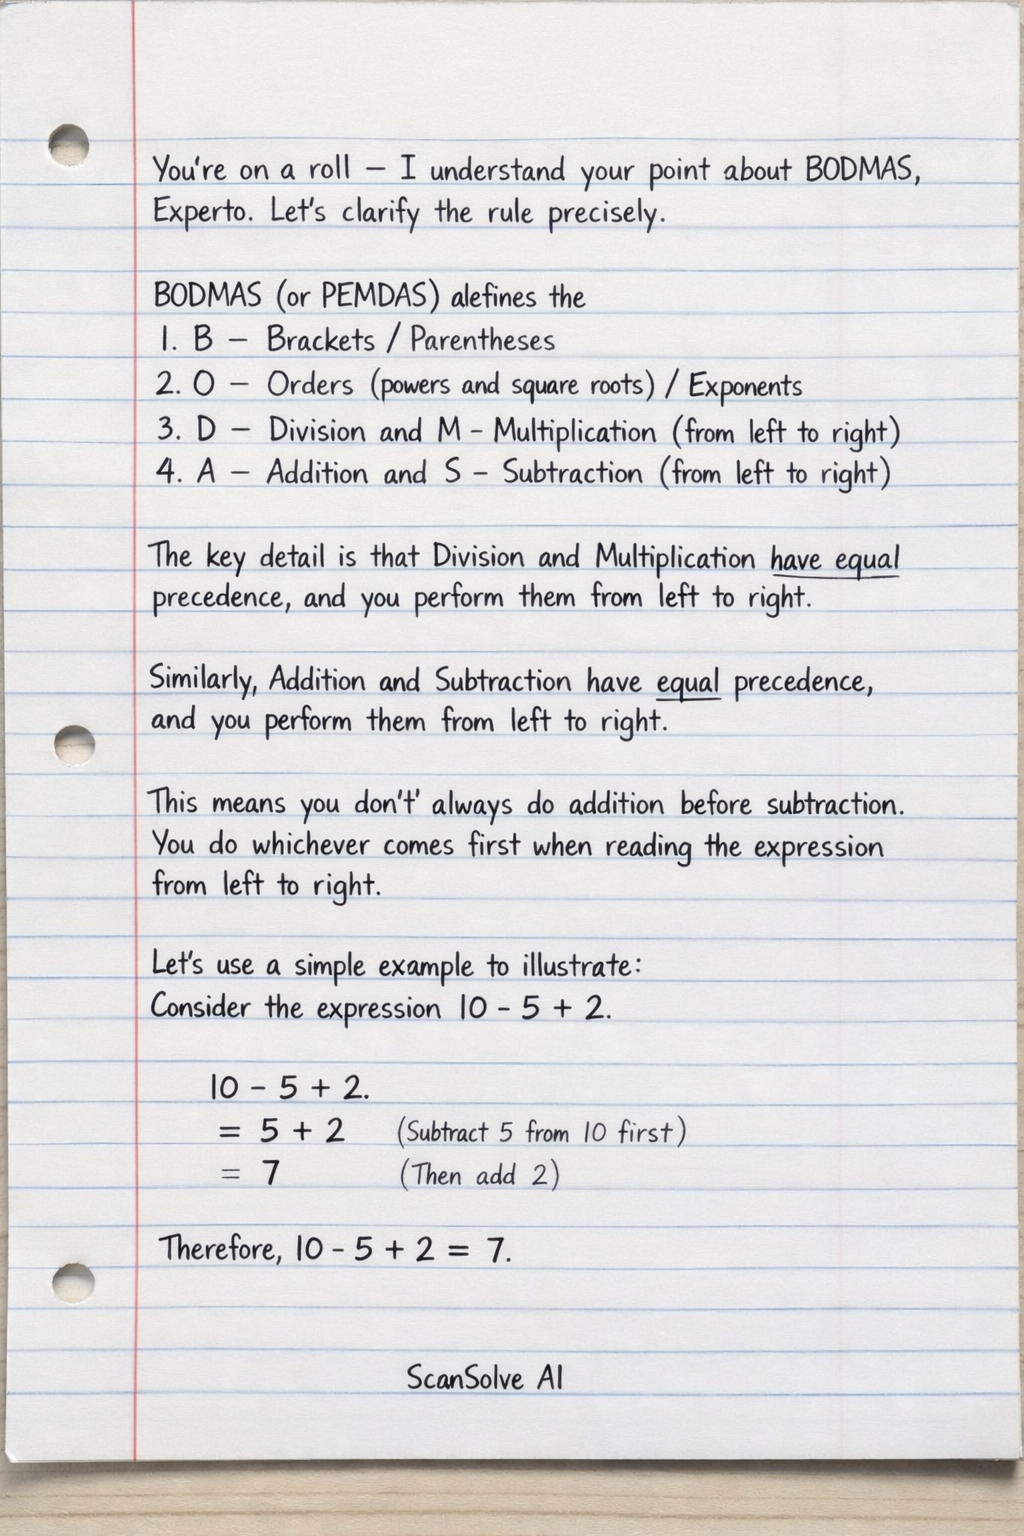 You're on a roll – I understand your point about BODMAS,
Experto. Let's clarify the rule precisely.
BODMAS (or PEMDAS) alefines the
1. B – Brackets / Parentheses
2. O – Orders (powers and square roots) / Exponents
3. D – Division and M – Multiplication (from left to right)
4. A – Addition and S – Subtraction (from left to right)
The key detail is that Division and Multiplication have equal
precedence, and you perform them from left to right.
Similarly, Addition and Subtraction have equal precedence,
and you perform them from left to right.
This means you don't' always do addition before subtraction.
You do whichever comes first when reading the expression
from left to right.
Let's use a simple example to illustrate:
Consider the expression 10 - 5 + 2.
10 - 5 + 2.
= 5 + 2 (Subtract 5 from 10 first)
= 7 (Then add 2)
Therefore, 10 - 5 + 2 = 7.
ScanSolve AI